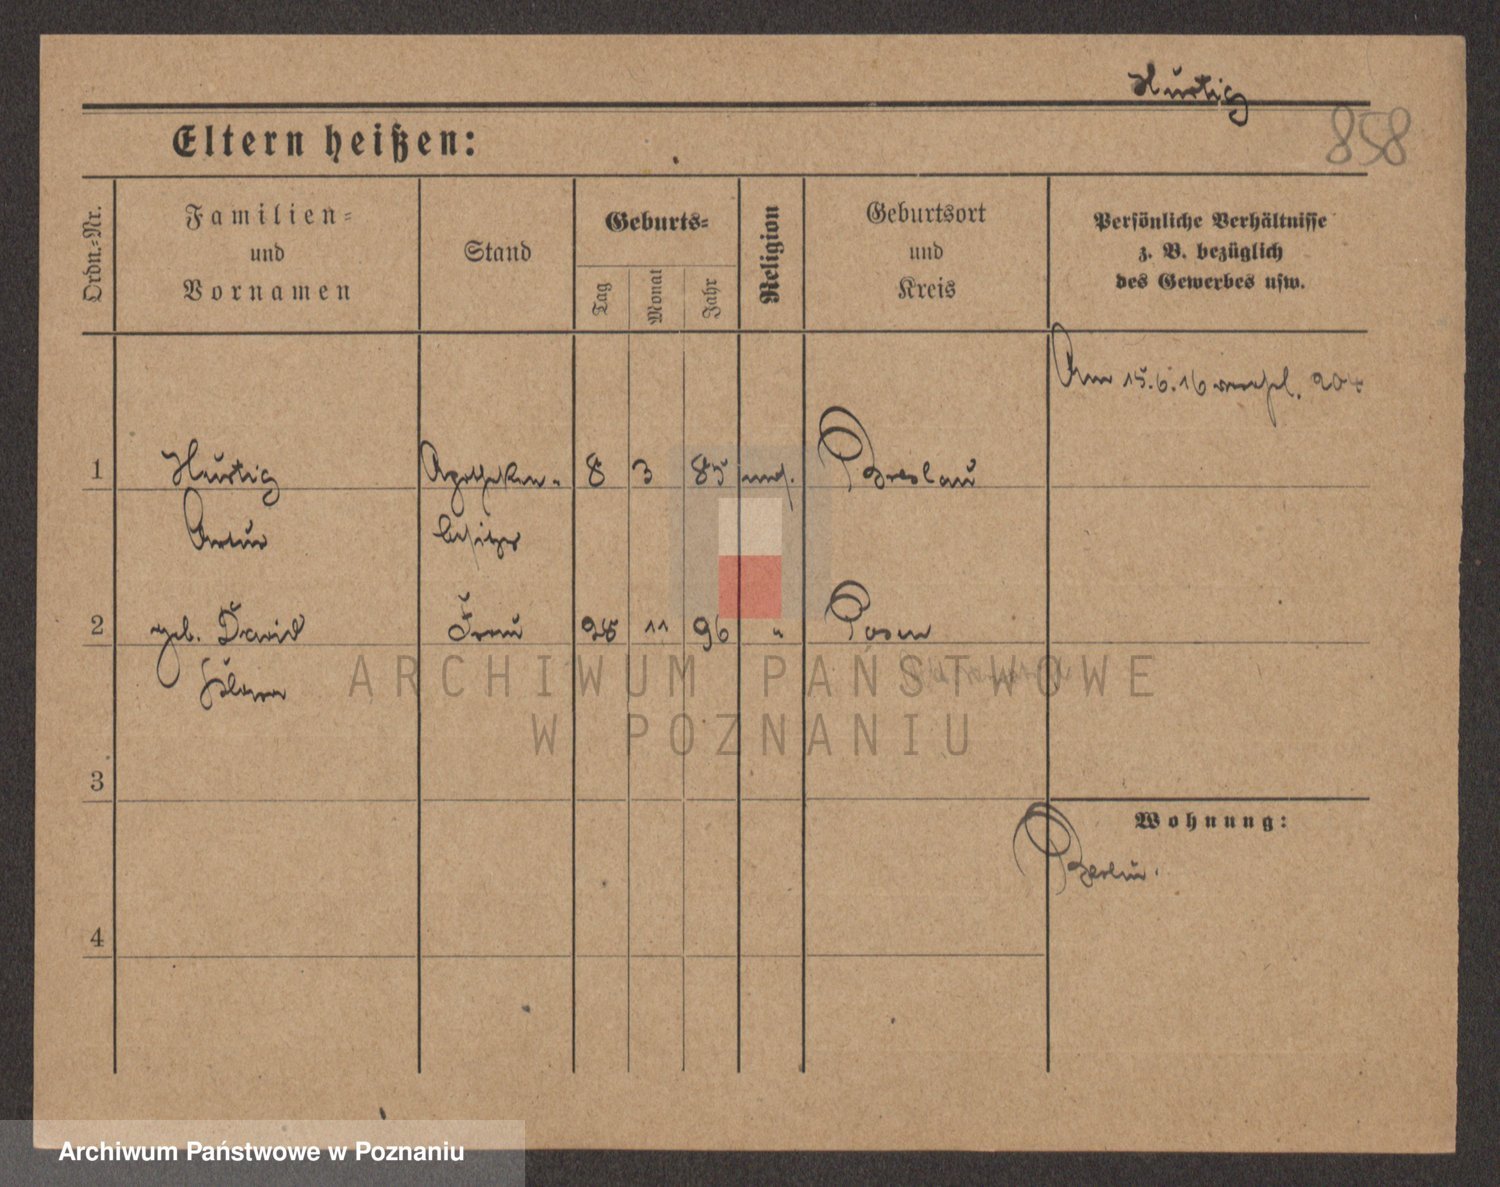 Hurtig
858
Eltern heißen:
Ordn.-Nr.
Familien-
und
Vornamen
Stand
Geburts-
Tag
Monat
Jahr
Religion
Geburtsort
und
Kreis
Persönliche Verhältnisse
z. B. bezüglich
des Gewerbes usw.
Am 15.6.16
1 Hurtig Apotheken- 8 3 85 mos. Breslau
Artur besitzer
2 geb. David Frau 28 11 96 " Posen
ARCHIWUM PAŃSTWOWE
W POZNANIU
3
Wohnung:
Berlin.
4
Archiwum Państwowe w Poznaniu